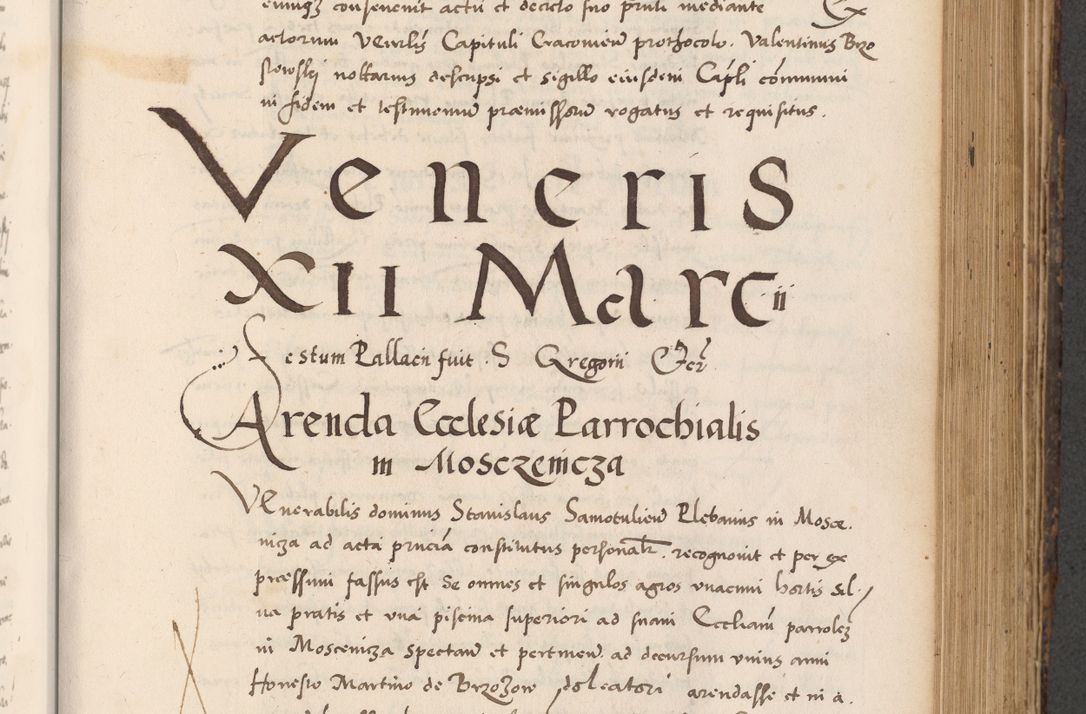 eiusqz consenenit actu et decreto suo pruti mediante Ex
actorum Venrlis Capituli Cracovien prothocolo. Valentinus Brzo
stowskij nottarius descripsi et sigillo eiusdem Capli communi
in fidem et testimonium praemissorum rogatus et requisitus.
Veneris
XII Marcii
Festum Pallacii fuit S Gregorii
Arenda Ecclesiæ Parrochialis
in Mosczenicza
VEnerabilis dominus Stanislaus Samotulien Plebanus in Mosce.
nicza ad acta constitutus personalr. recognovit et per ex
pressum fassus est se omnes et singulos agros unacum hortis sil-
va pratis et una piscina superiori ad suam Eccliam parrolez
in Moscenicza spectan et pertinen ad decursum unius anni
Honesto Martino de Brzozow doleatori arendasse et in a.